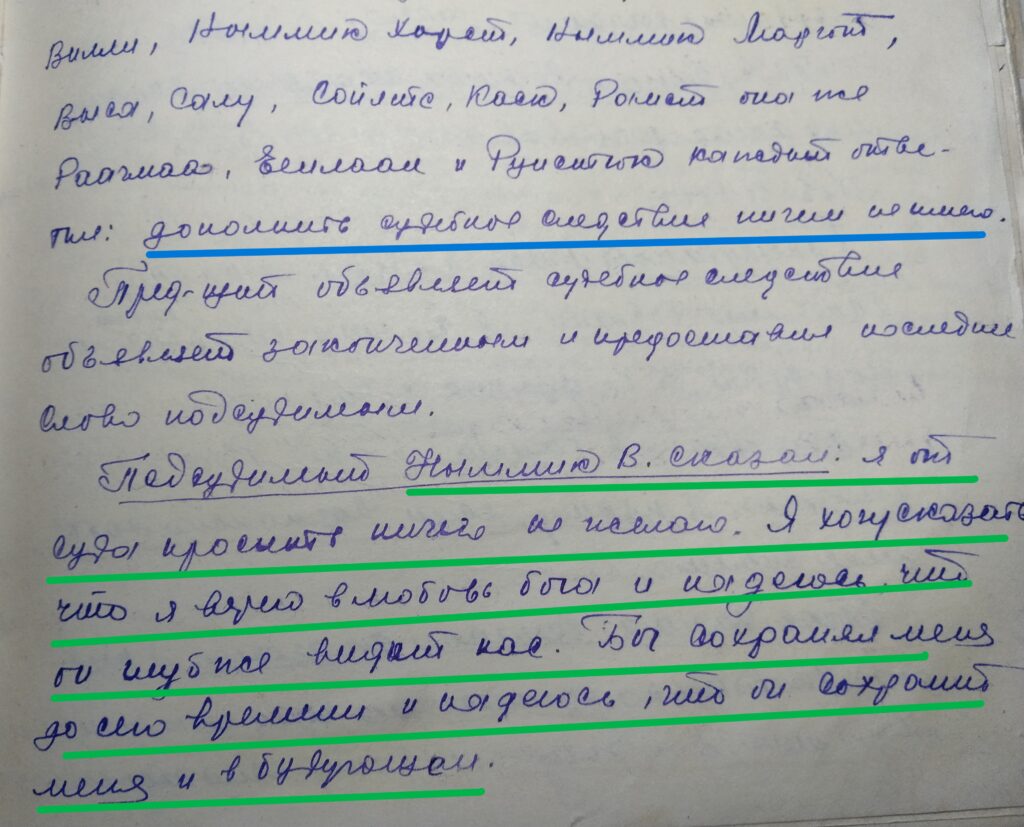 Вилли, Ныммик Хорст, Ныммик Маргот,
Выса, Салу, Сойлитс, Каск, Ромет она же
Раагмаа, и каждый отве-
тил: дополнить судебное следствие ничем не имею.
Пред-щий объявляет судебное следствие
объявляет законченным и предоставил последнее
слово подсудимым.
Подсудимый Ныммик В. сказал: я от
суда просить ничего не желаю. Я хочу сказать
что я верю в любовь бога и надеюсь, что
он глубже видит нас. Бог сохранял меня
до сего времени и надеюсь, что он сохранит
меня и в будующем.